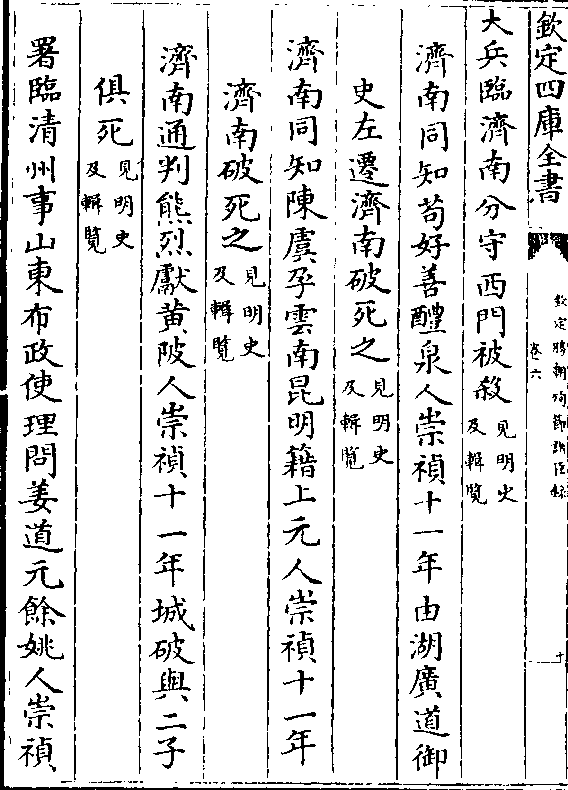 欽定四庫全書
欽定勝朝殉節諸臣錄
卷六
十
大兵臨濟南分守西門被殺見明史及輯覽
濟南同知茍好善醴泉人崇禎十一年由湖廣道御
史左遷濟南破死之見明史及輯覽
濟南同知陳虞孕雲南昆明籍上元人崇禎十一年
濟南破死之見明史及輯覽
濟南通判熊烈獻黄陂人崇禎十一年城破與二子
俱死見明史及輯覽
署臨清州事山東布政使理問姜道元餘姚人崇禎